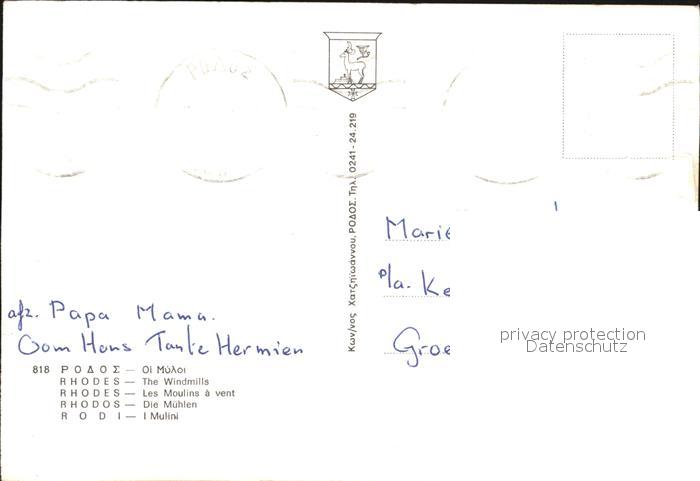 ΡΟΔΟΣ
Κων/νος Χατζηϊωάννου, ΡΟΔΟΣ. Τηλ. 0241-24.219
Marie
p/a. Ke
Groe
afz. Papa Mama.
Oom Hans Tante Hermien
818 ΡΟΔΟΣ — Οἱ Μύλοι
RHODES — The Windmills
RHODES — Les Moulins à vent
RHODOS — Die Mühlen
RODI — I Mulini
privacy protection
Datenschutz